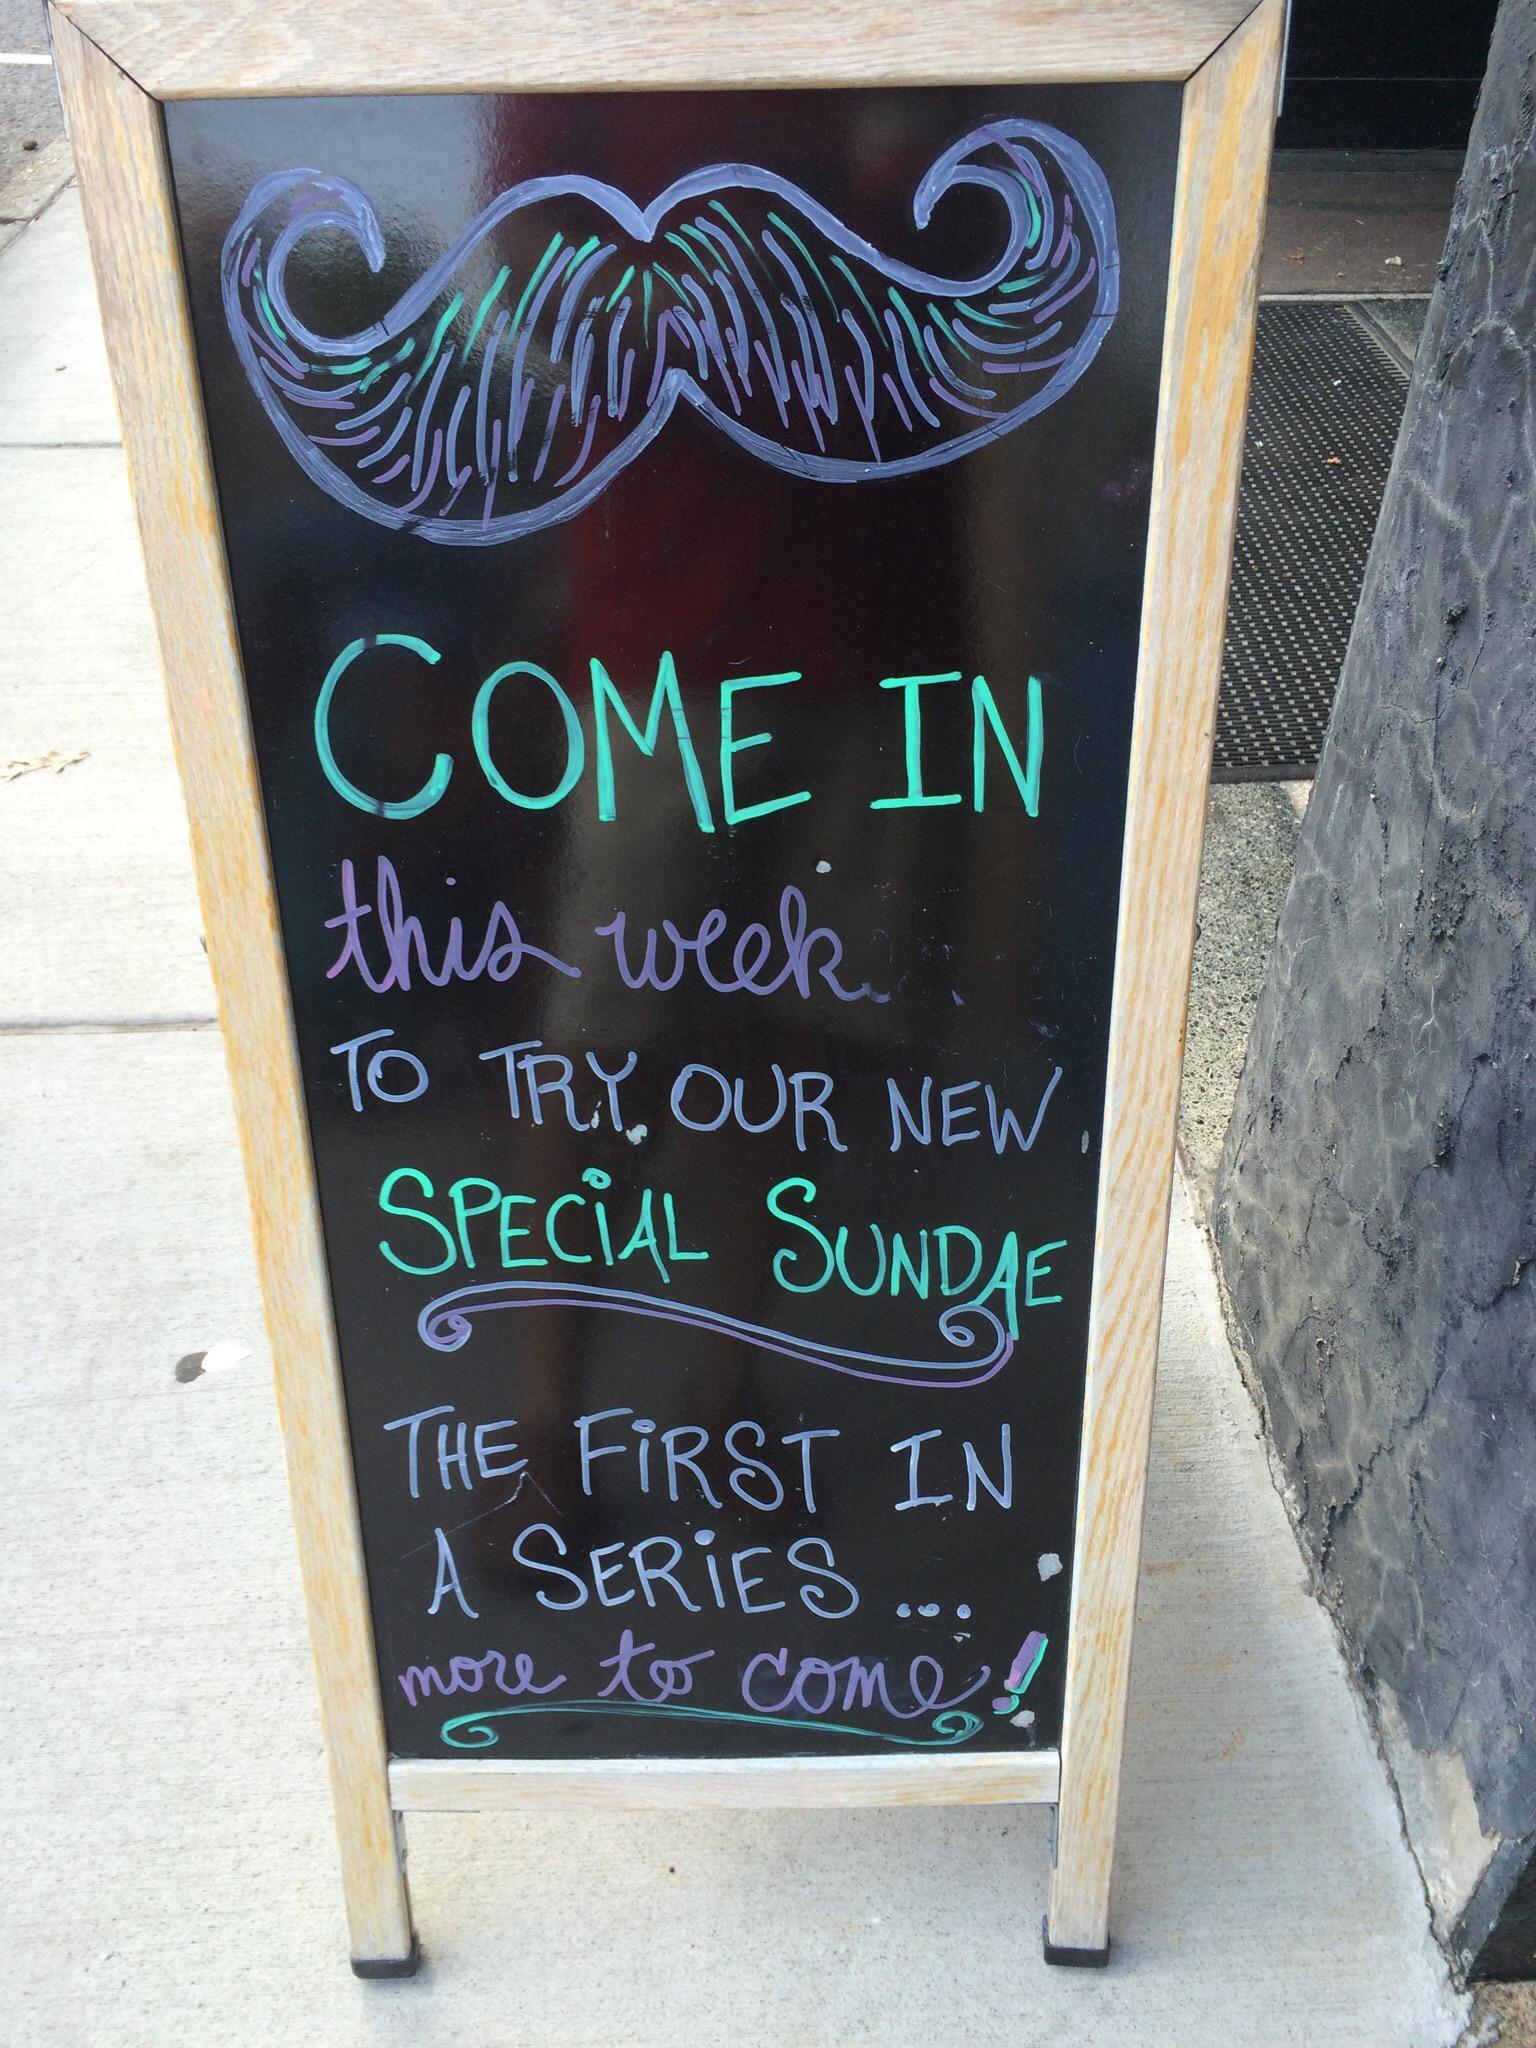 COME IN
this week
TO TRY OUR NEW
SPECIAL SUNDAE
THE FIRST IN
A SERIES ...
more to come!